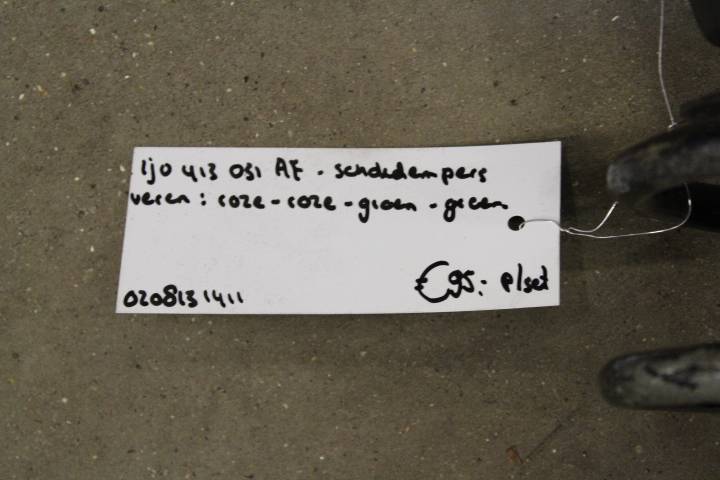 1j0 413 031 AF - schokdempers
veren : roze - roze - groen - groen
€95,- p/set
0208131411